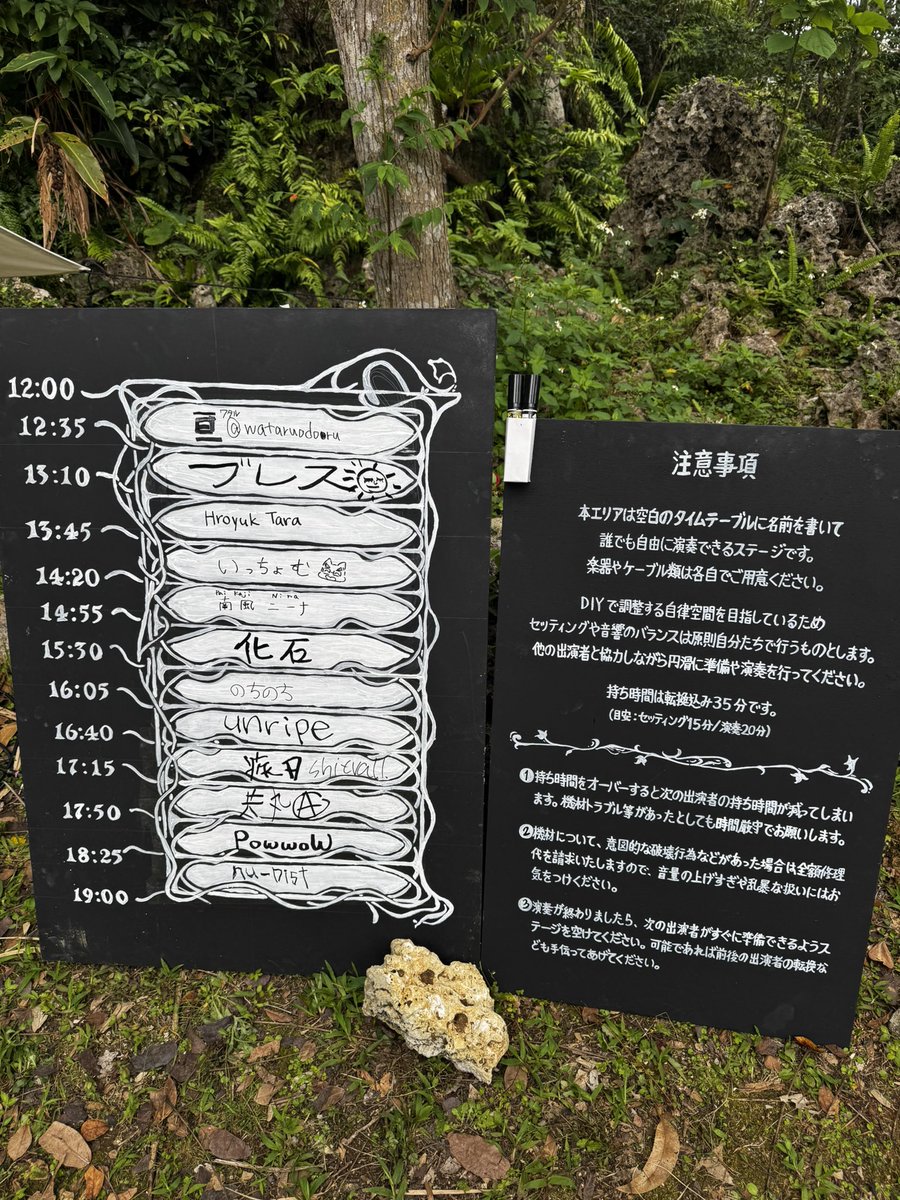 12:00
12:35
13:10
13:45
14:20
14:55
15:30
16:05
16:40
17:15
17:50
18:25
19:00
ワタル
亘@wataruodooru
ブレス
Hroyuk Tara
いっちょむ
Mi Kaji Nina
南風 ニーナ
化石
のちのち
unripe
PowwoW
nu-Dist
注意事項
本エリアは空白のタイムテーブルに名前を書いて
誰でも自由に演奏できるステージです。
楽器やケーブル類は各自でご用意ください。
DIYで調整する自律空間を目指しているため
セッティングや音響のバランスは原則自分たちで行うものとします。
他の出演者と協力しながら円滑に準備や演奏を行ってください。
持ち時間は転換込み35分です。
(目安:セッティング15分/演奏20分)
①持ち時間をオーバーすると次の出演者の持ち時間が減ってしまい
ます。機材トラブル等があったとしても時間厳守でお願いします。
②機材について、意図的な破壊行為などがあった場合は全額修理
代を請求いたしますので、音量の上げすぎや乱暴な扱いにはお
気をつけください。
③演奏が終わりましたら、次の出演者がすぐに準備できるようス
テージを空けてください。可能であれば前後の出演者の転換な
ども手伝ってあげてください。